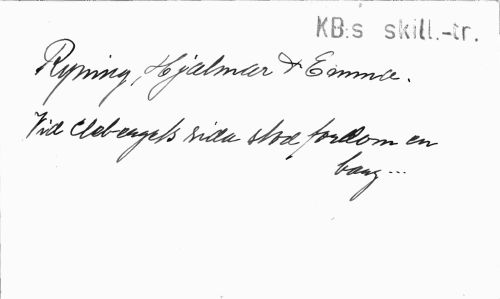 KB:s skill.-tr.
Ryning, Hjalmar & Emma.
Vid Clebergets sida stod fordom en
borg...